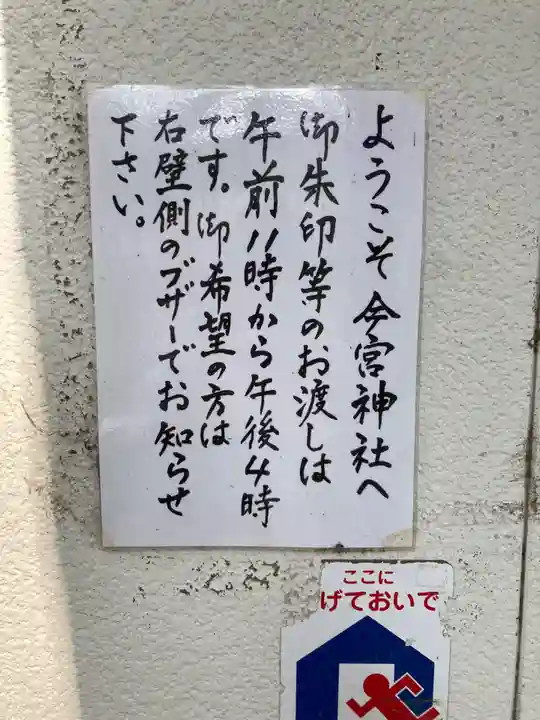 ようこそ今宮神社へ
御朱印等のお渡しは
午前11時から午後4時
です。御希望の方は
右壁側のブザーでお知らせ
下さい。
ここに
げておいで